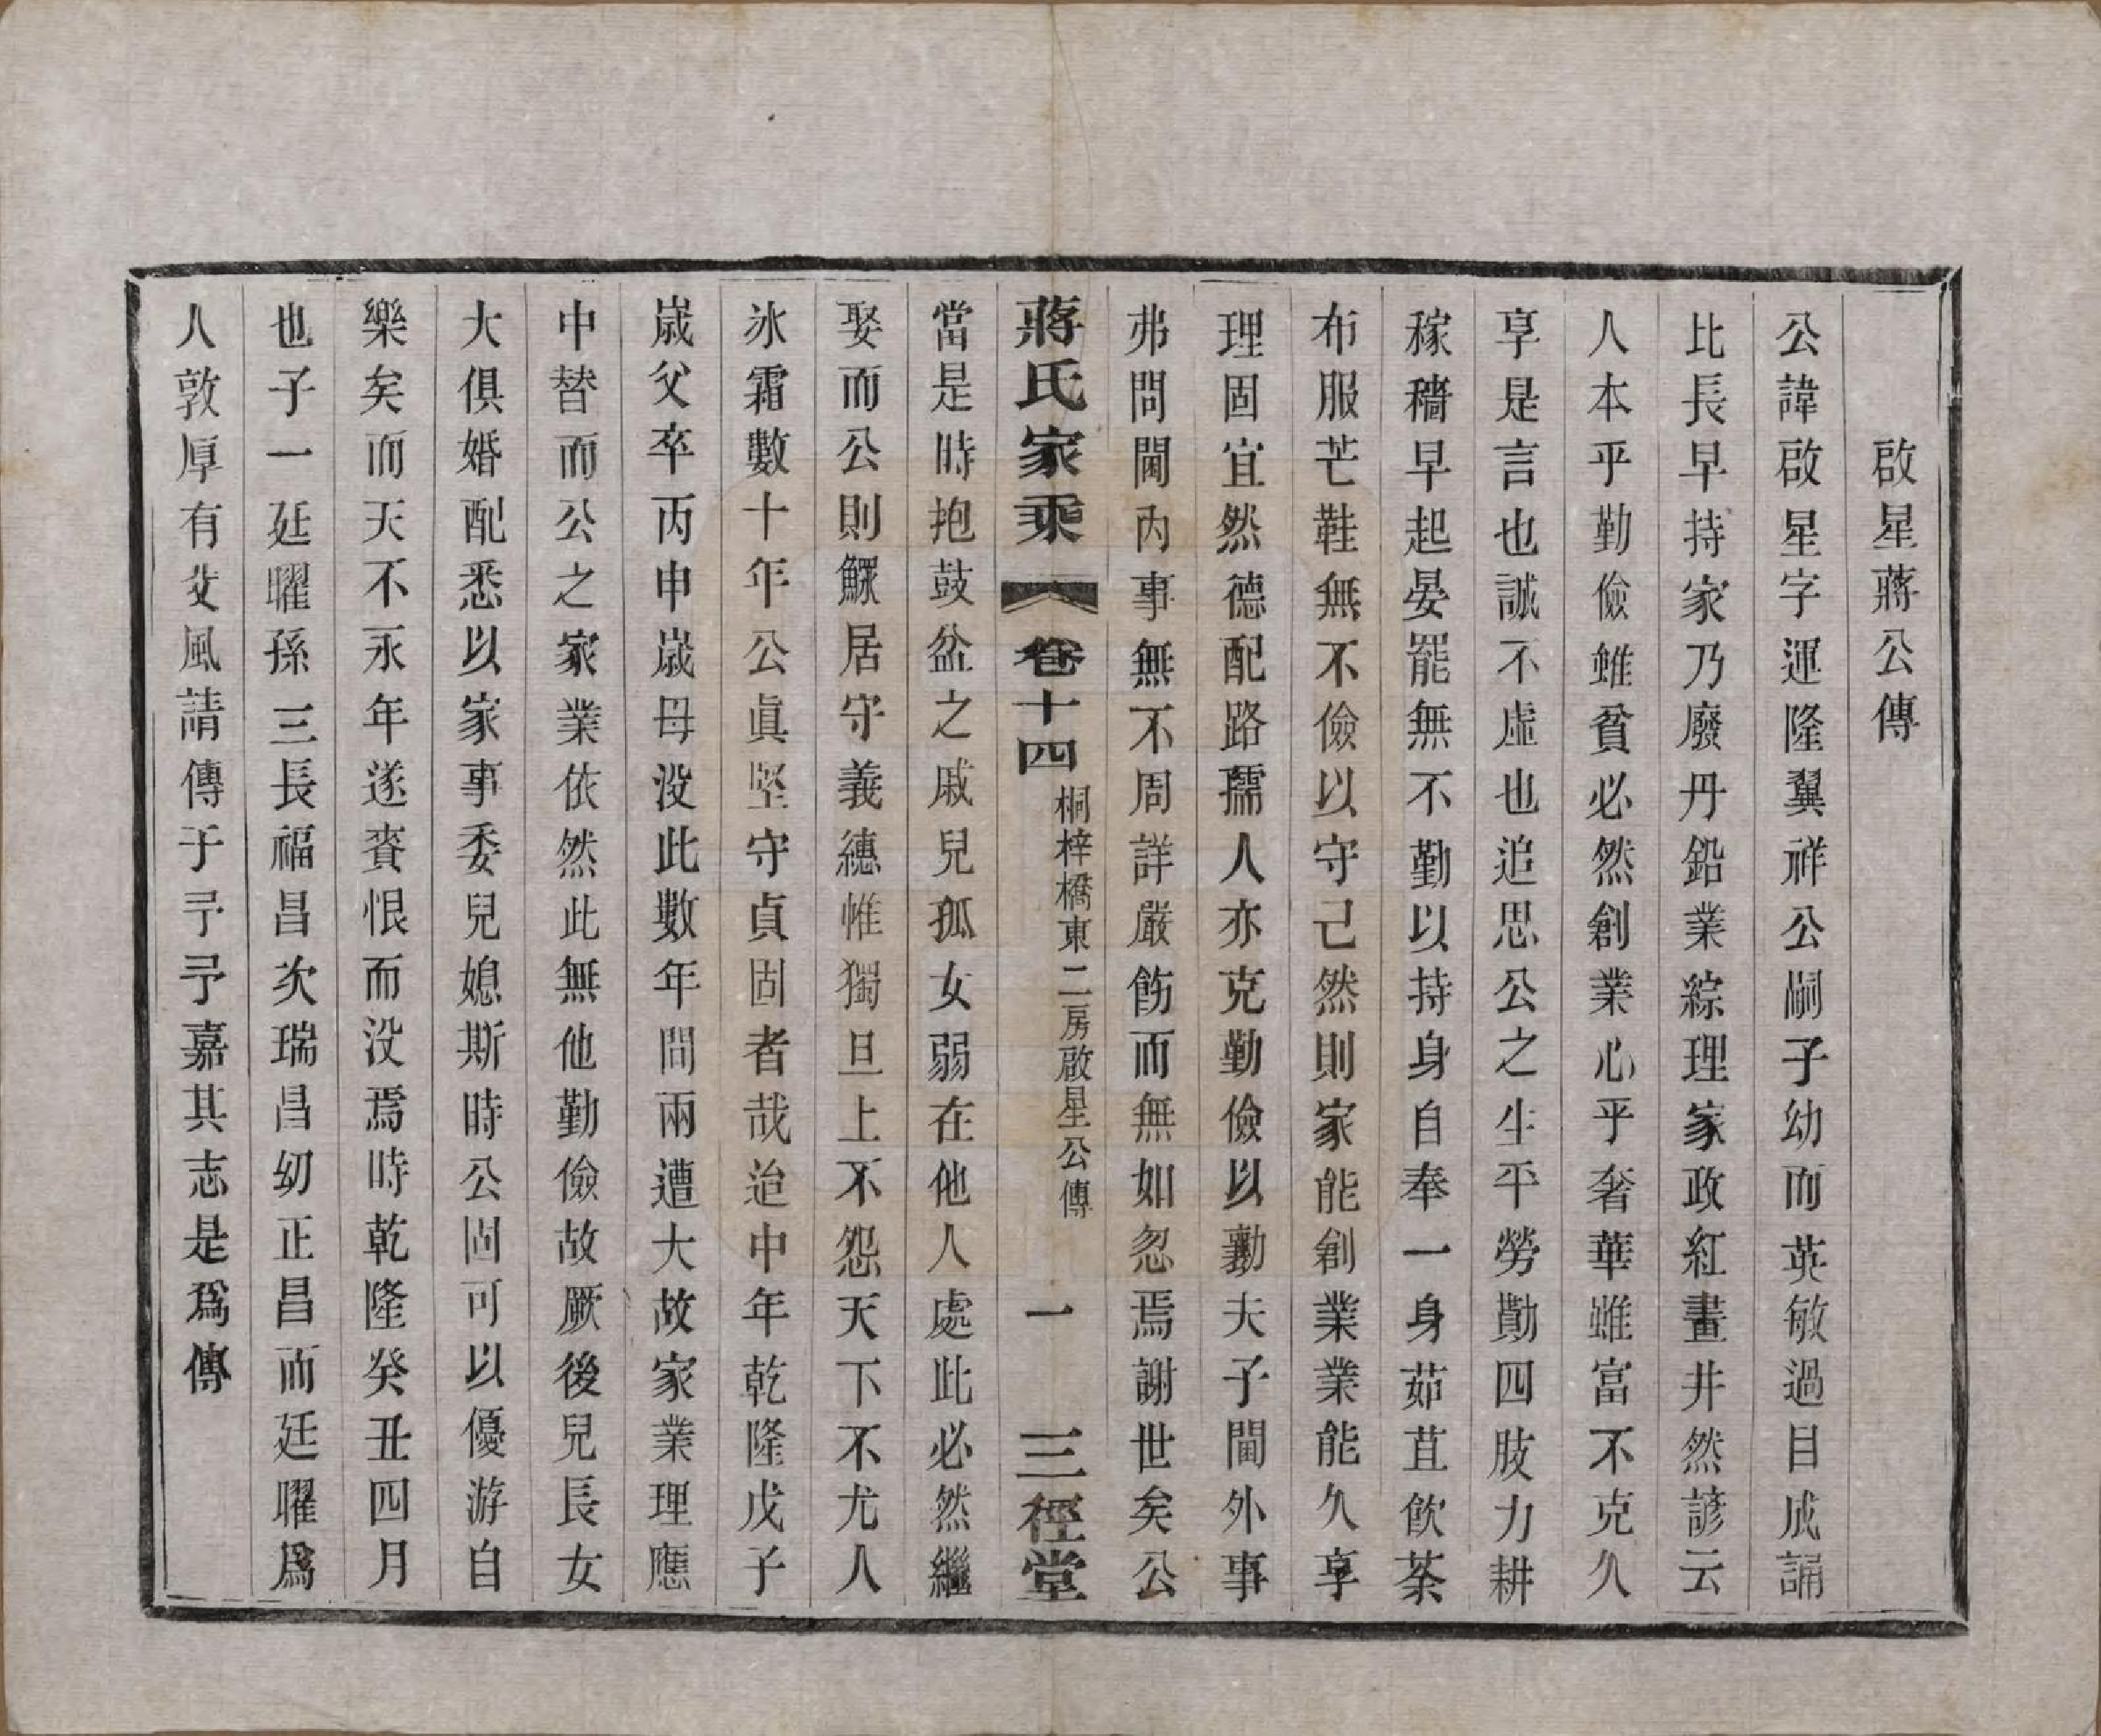 啟星蔣公傳
公諱啟星字運隆翼祥公嗣子幼而英敏過目成誦
比長早持家乃廢丹鉛業綜理家政紅畫井然諺云
人本乎勤儉雖貧必然創業心乎奢華雖富不克久
享是言也誠不虛也追思公之生平勞勩四肢力耕
稼穡早起晏罷無不勤以持身自奉一身茹苴飲荼
布服芒鞋無不儉以守己然則家能創業業能久享
理固宜然德配路孺人亦克勤儉以勷夫子閫外事
弗問閫內事無不周詳嚴飭而無如忽焉謝世矣公
蔣氏家乘 卷十四 桐梓橋東二房啟星公傳 一 三徑堂
當是時抱鼓盆之戚兒孤女弱在他人處此必然繼
娶而公則鰥居守義繐帷獨旦上不怨天下不尤人
氷霜數十年公眞堅守貞固者哉迨中年乾隆戊子
歲父卒丙申歲母没此數年間兩遭大故家業理應
中替而公之家業依然此無他勤儉故厥後兒長女
大俱婚配悉以家事委兒媳斯時公固可以優游自
樂矣而天不永年遂賫恨而没焉時乾隆癸丑四月
也子一廷曜孫三長福昌次瑞昌幼正昌而廷曜爲
人敦厚有父風請傳于予予嘉其志是爲傳